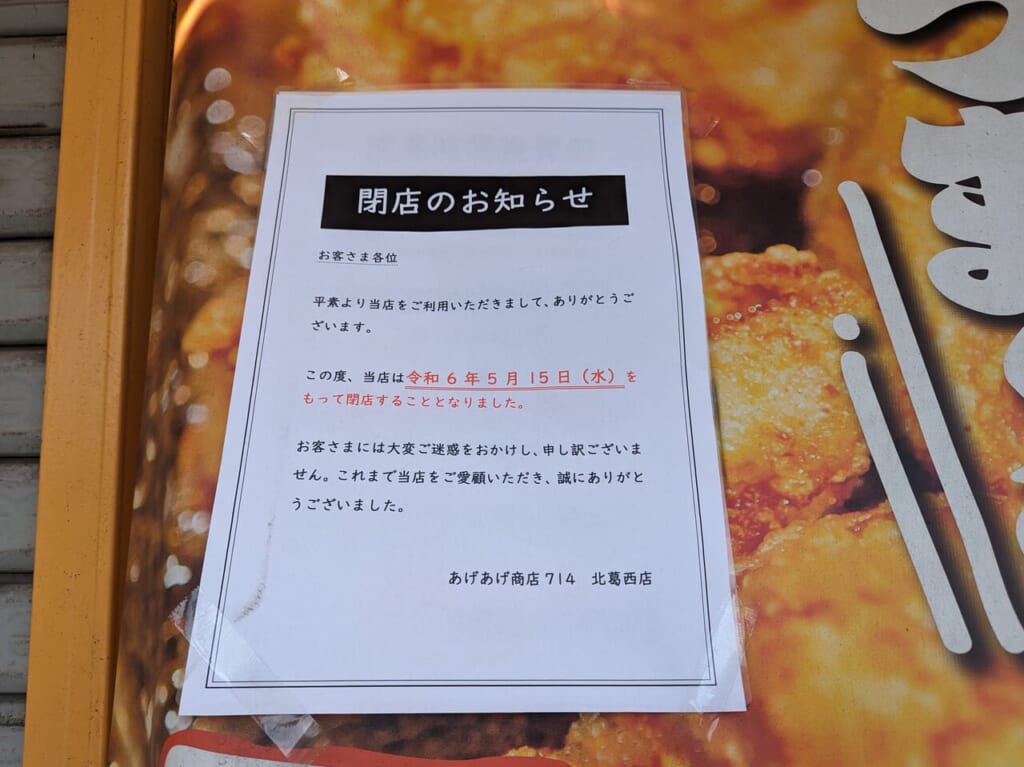 閉店のお知らせ
お客さま各位
平素より当店をご利用いただきまして、ありがとうご
ざいます。
この度、当店は令和6年5月15日（水）を
もって閉店することとなりました。
お客さまには大変ご迷惑をおかけし、申し訳ございま
せん。これまで当店をご愛顧いただき、誠にありがと
うございました。
あげあげ商店714　北葛西店